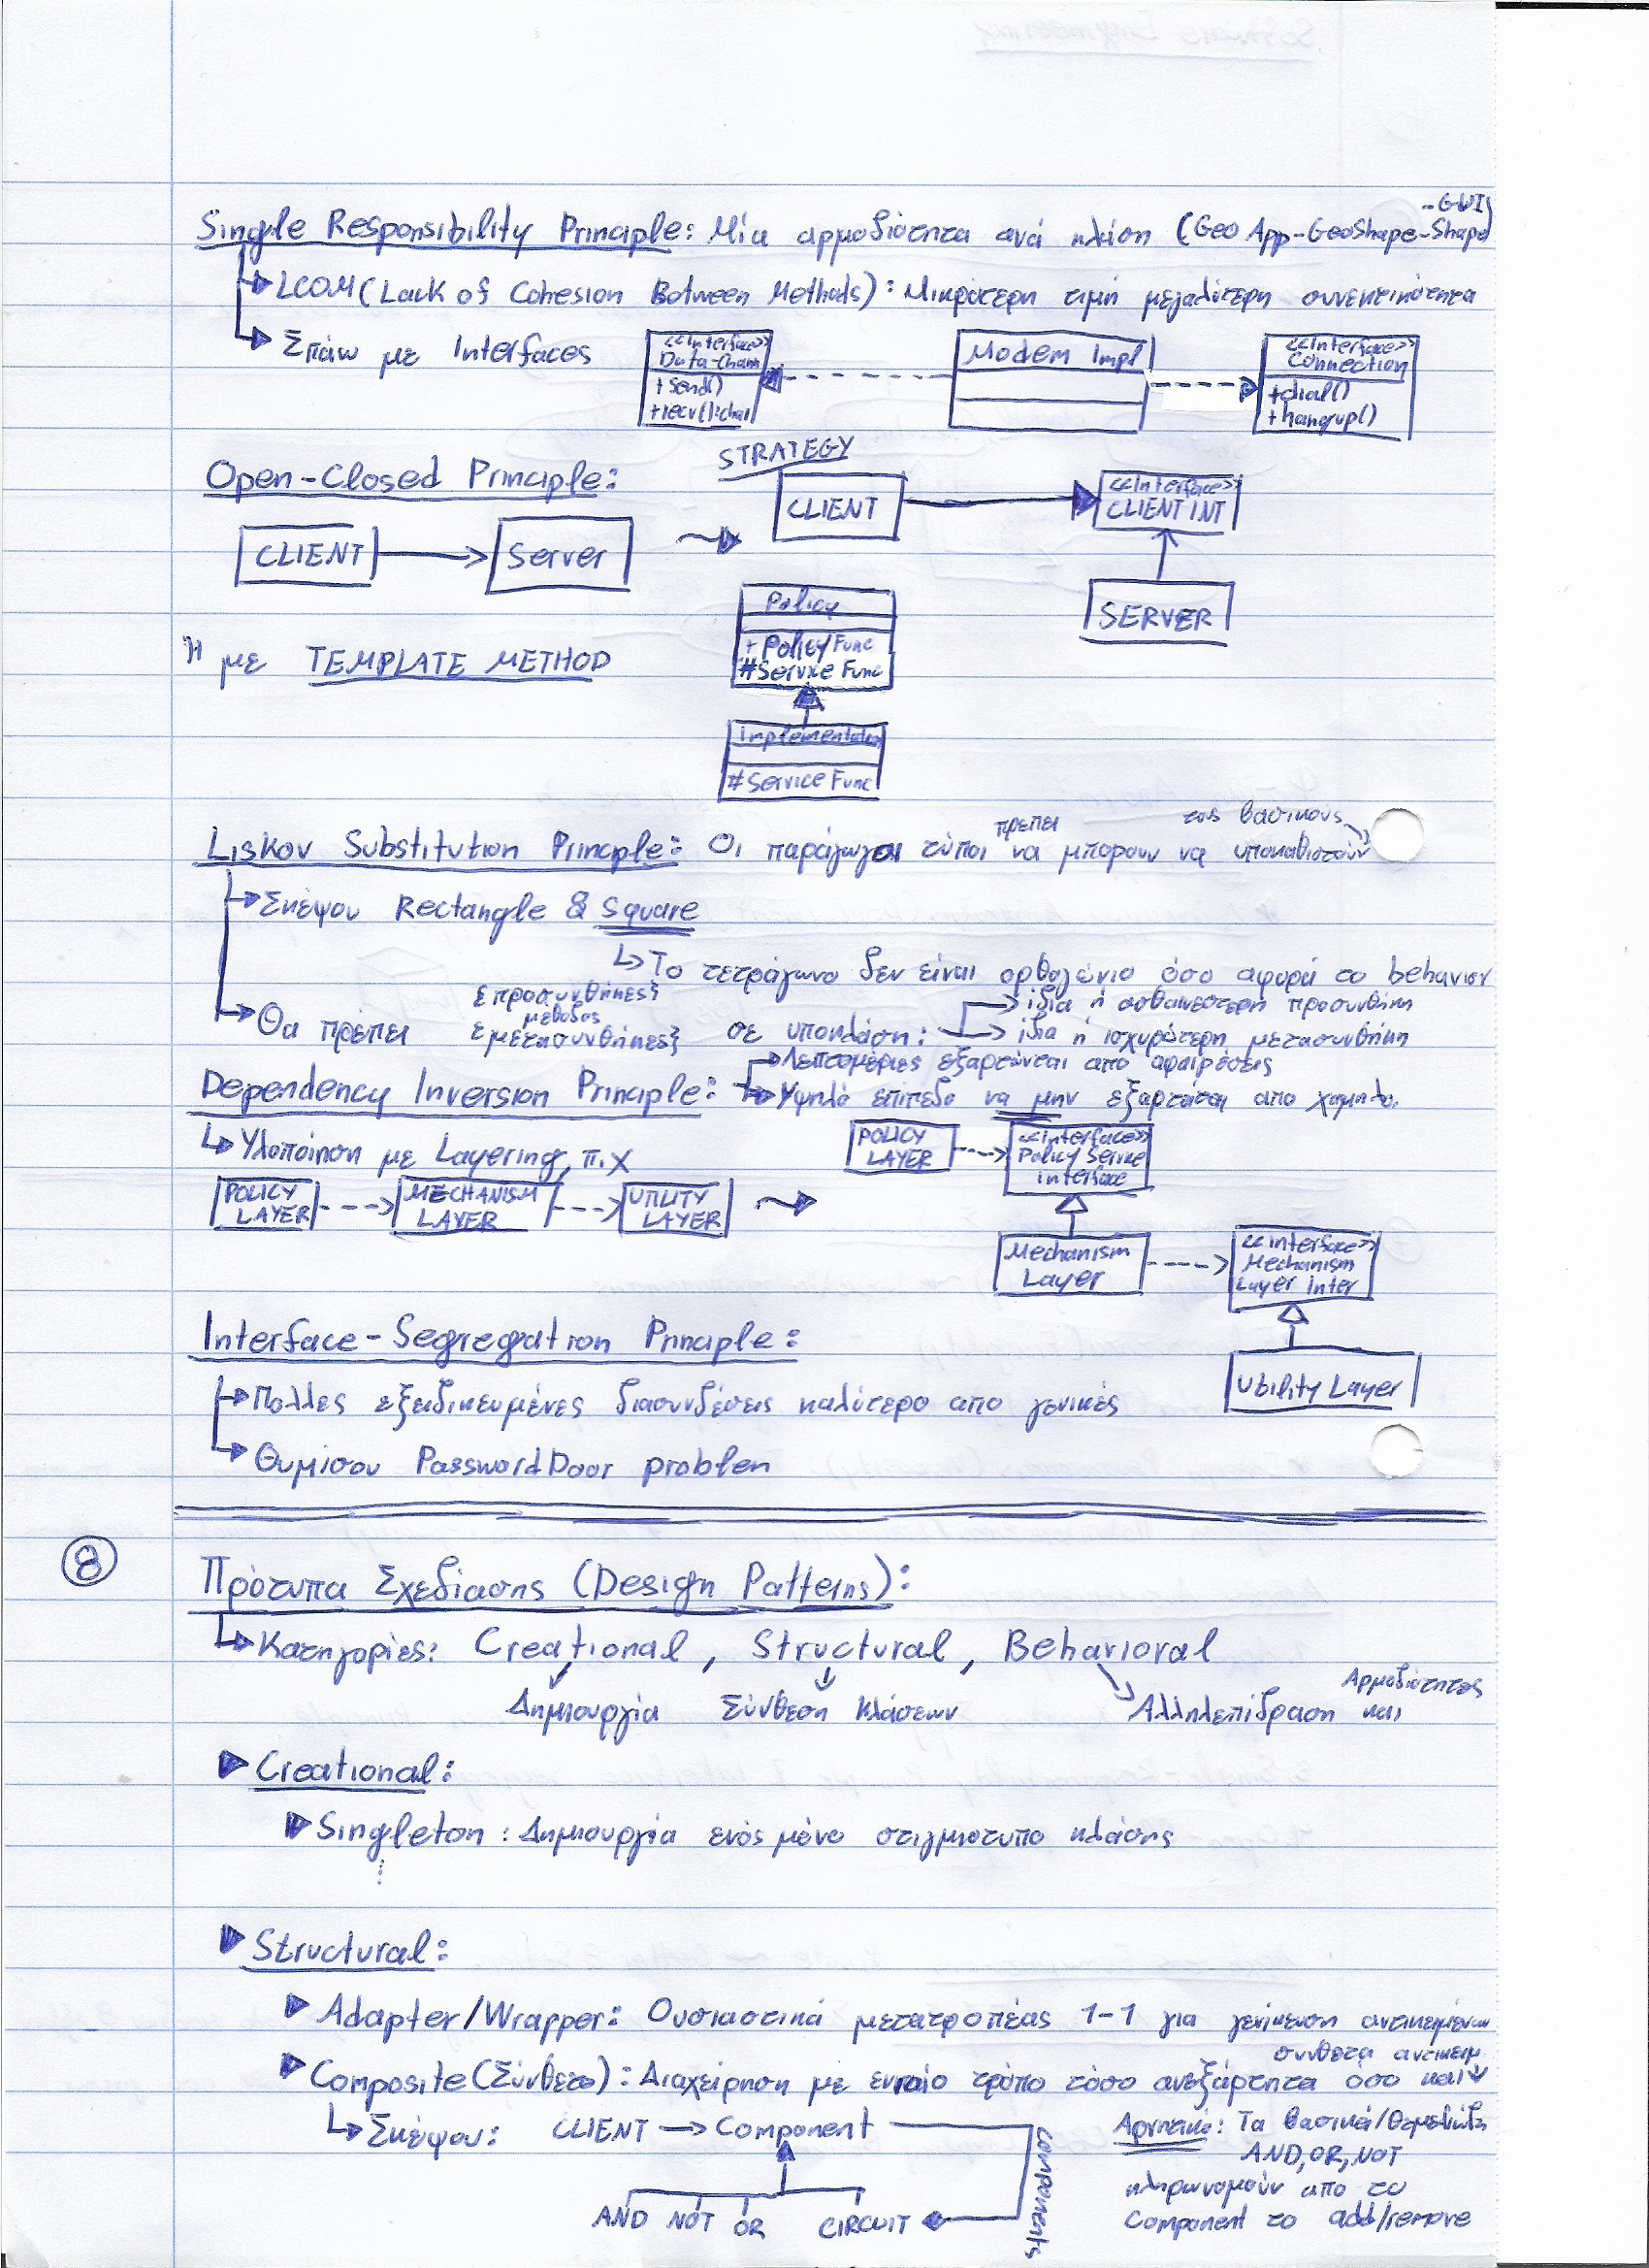 Single Responsibility Principle: Μία αρμοδιότητα ανά κλάση (Geo App-GeoShape-Shape
-GUI)
LCOM (Lack of Cohesion Between Methods): Μικρότερη τιμή μεγαλύτερη συνεκτικότητα
Σπάω με Interfaces
<<interface>>
Data-Chan
+send()
+recv():char
Modem Impl
<<Interface>>
Connection
+dial()
+hangup()
Open-Closed Principle:
STRATEGY
CLIENT
Server
CLIENT
<<Interface>>
CLIENT INT
SERVER
Ή με TEMPLATE METHOD
Policy
+PolicyFunc
#Service Func
Implementation
#Service Func
Liskov Substitution Principle: Οι παράγωγοι τύποι πρέπει να μπορουν να υποκαθιστούν
τους βασικους
Σκέψου Rectangle & Square
Το τετράγωνο δεν είναι ορθογώνιο όσο αφορά το behavior
Θα πρέπει
{προσυνθήκες}
μέθοδος
{μετασυνθήκες}
σε υποκλάση:
ίδια ή ασθενεστερη προσυνθήκη
ίδια ή ισχυρότερη μετασυνθήκη
Dependency Inversion Principle:
Λεπτομέριες εξαρτώνται από αφαιρέσεις
Υψηλό επίπεδο να μην εξαρτάται απο χαμηλο.
Υλοποίηση με Layering, π.χ
POLICY
LAYER
MECHANISM
LAYER
UTILITY
LAYER
POLICY
LAYER
<<interface>>
Policy Service
interface
Mechanism
Layer
<<interface>>
Mechanism
Layer Inter
Utility Layer
Interface-Segregation Principle:
Πολλες εξειδικευμένες διασυνδέσεις καλύτερο απο γενικές
Θυμίσου PasswordDoor problem
8
Πρότυπα Σχεδίασης (Design Patterns):
Κατηγορίες: Creational, Structural, Behavioral
Δημιουργία Σύνθεση Κλάσεων Αλληλεπίδραση και
Αρμοδιότητες
Creational:
Singleton: Δημιουργία ενός μόνο στιγμιοτυπο κλάσης
Structural:
Adapter/Wrapper: Ουσιαστικά μετατροπέας 1-1 για γενίκευση αντικειμένων
Composite (Σύνθετο): Διαχείρηση με ενιαίο τρόπο τόσο ανεξάρτητα όσο και
συνθετα αντικειμ.
Σκέψου: CLIENT → Component
components
AND NOT OR CIRCUIT
Αρνητικό: Τα βασικά/θεμελιώδη
AND, OR, NOT
κληρωνομούν απο το
Component το add/remove